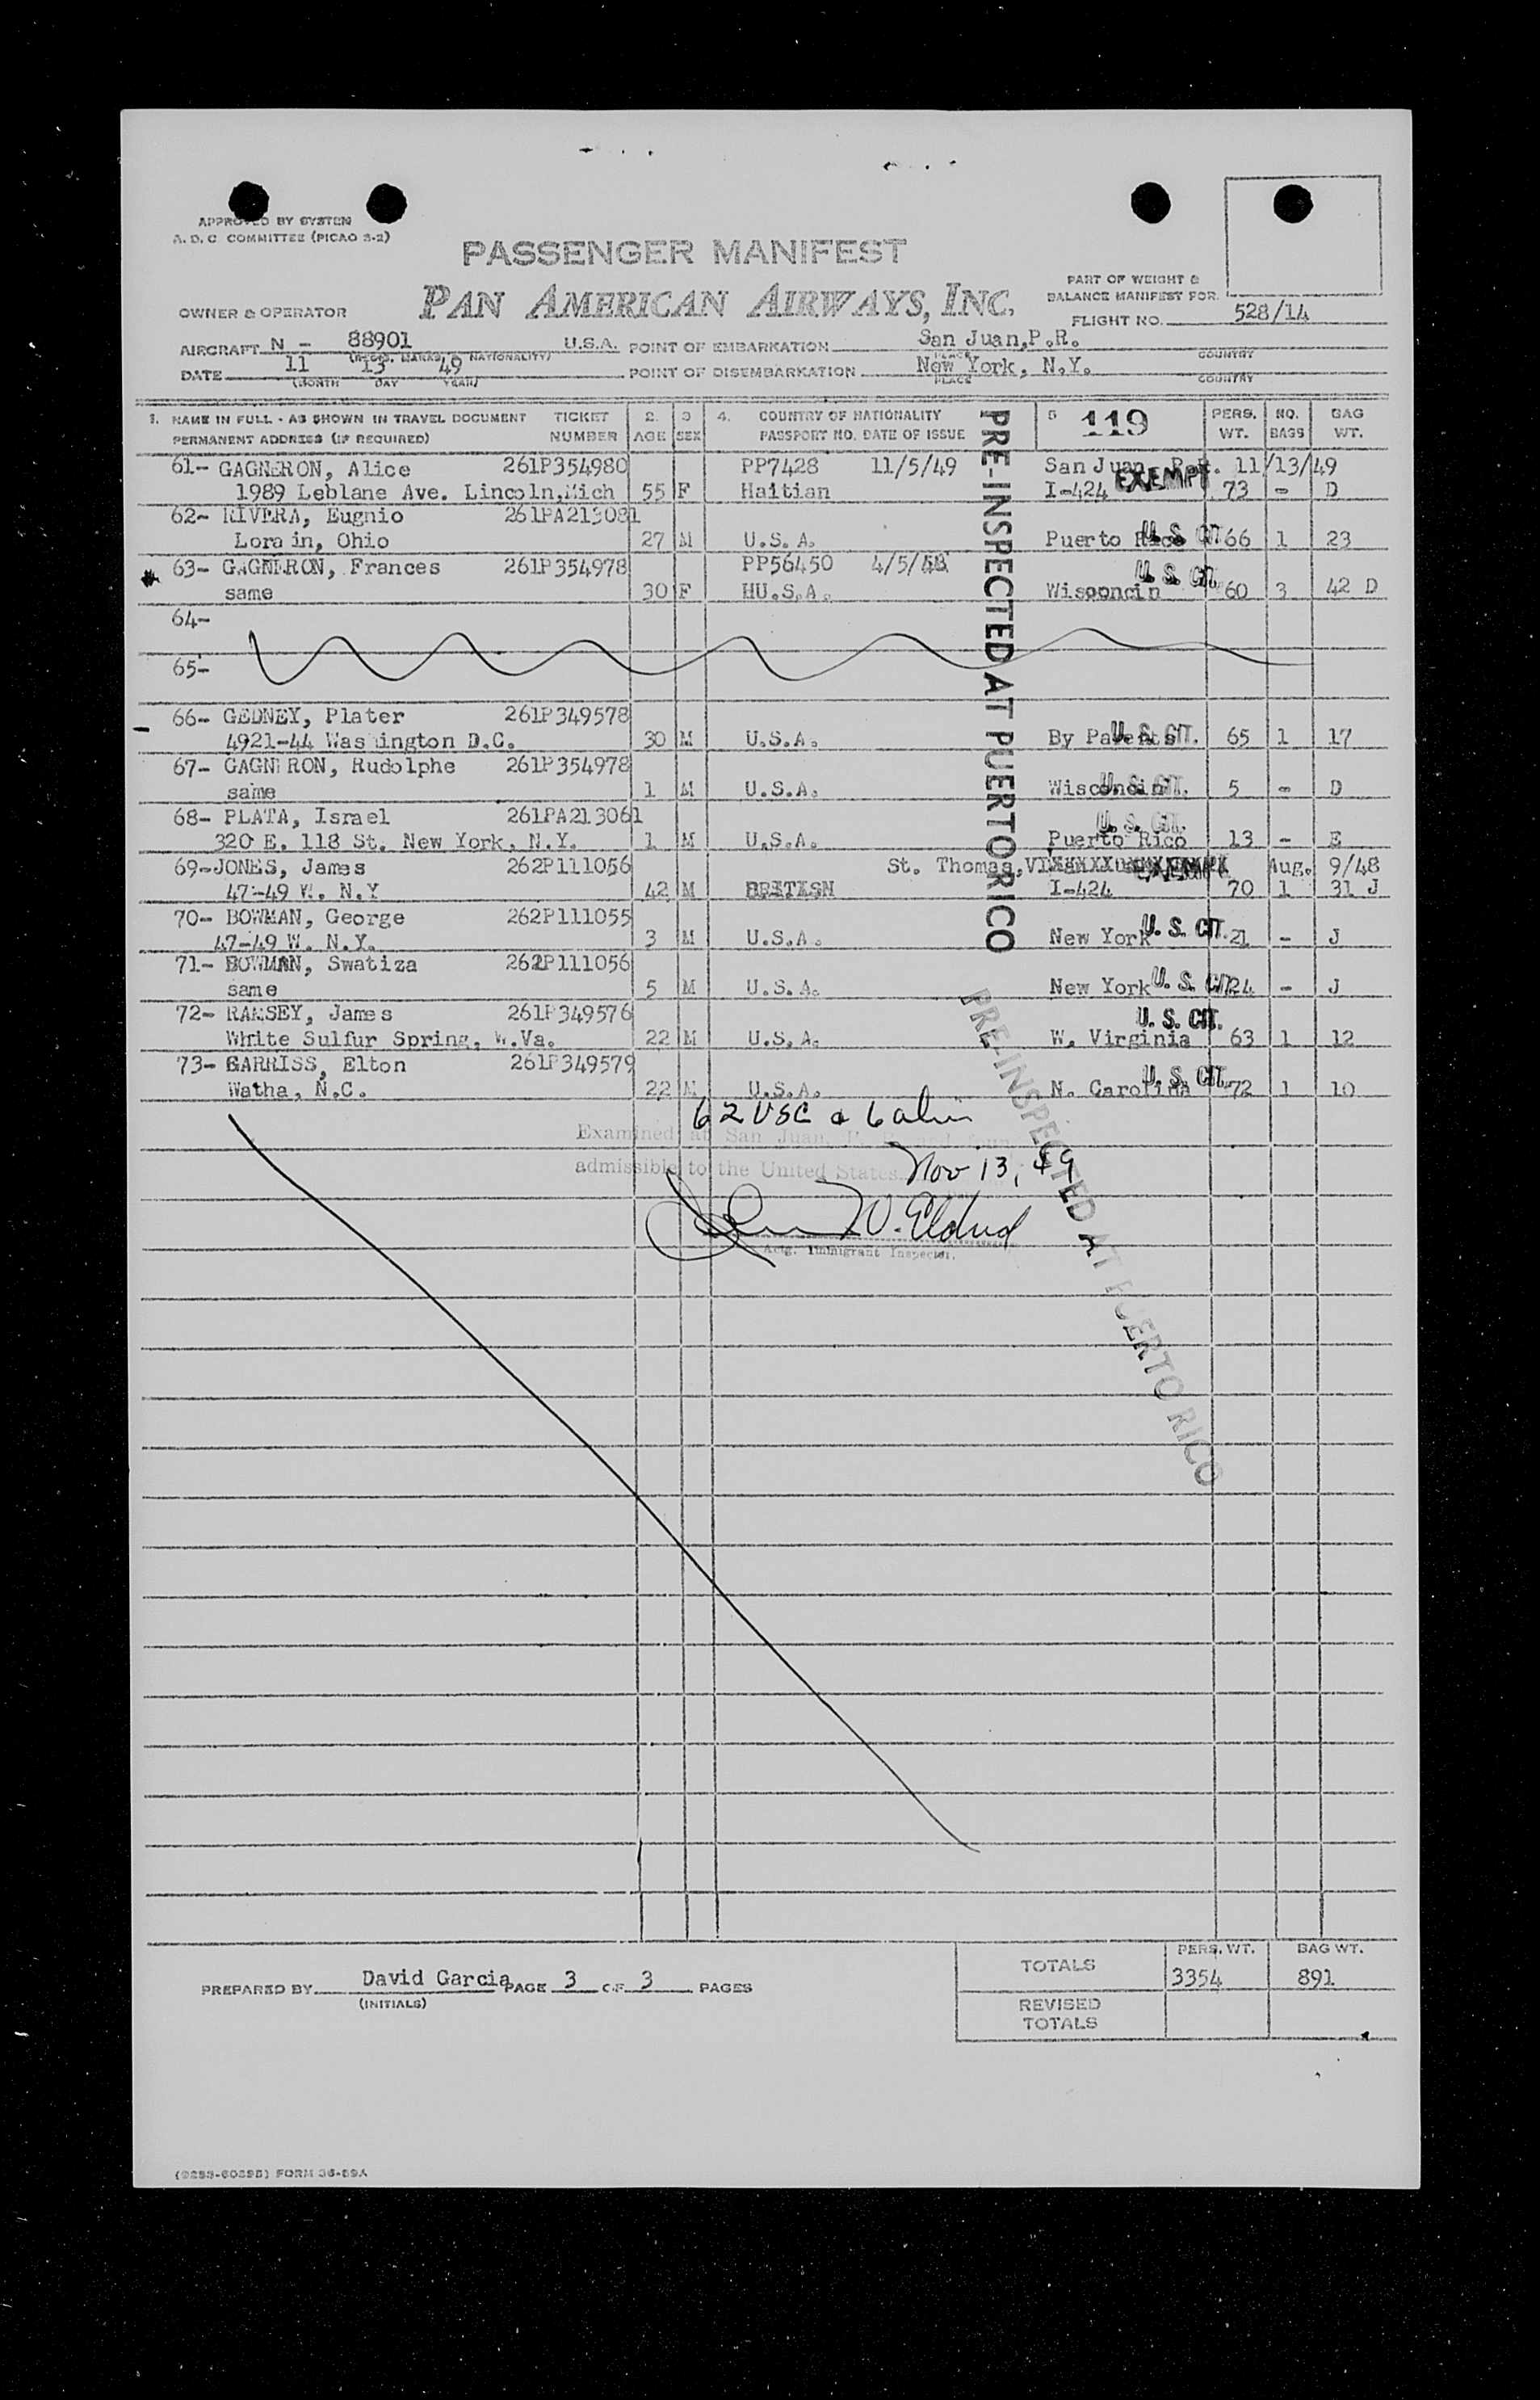 APPROVED BY SYSTEM
A. D. C. COMMITTEE (PICAO S-2)
PASSENGER MANIFEST
PART OF WEIGHT &
BALANCE MANIFEST FOR
OWNER & OPERATOR PAN AMERICAN AIRWAYS, INC.
FLIGHT NO. 528/14
AIRCRAFT N - 88901 U.S.A. POINT OF EMBARKATION San Juan,P.R.
(REGIS. MARKS, NATIONALITY) PLACE COUNTRY
DATE 11 13 49 POINT OF DISEMBARKATION New York, N.Y.
(MONTH DAY YEAR) PLACE COUNTRY
1. NAME IN FULL - AS SHOWN IN TRAVEL DOCUMENT TICKET 2. 3 4. COUNTRY OF NATIONALITY 5 119 PERS. NO. BAG
PERMANENT ADDRESS (IF REQUIRED) NUMBER AGE SEX PASSPORT NO. DATE OF ISSUE WT. BAGS WT.
61- GAGNERON, Alice 261P354980 PP7428 11/5/49 San Juan, P.R. 11/13/49
1989 Leblane Ave. Lincoln,Mich 55 F Haitian I-424 EXEMPT 73 - D
62- RIVERA, Eugnio 261PA213081
Lorain, Ohio 27 M U.S.A. Puerto Rico U. S. CIT. 66 1 23
63- GAGNERON, Frances 261P354978 PP56450 4/5/48 U. S. CIT.
same 30 F HU.S.A. Wisconcin 60 3 42 D
64-
65-
66- GEDNEY, Plater 261P349578
4921-44 Washington D.C. 30 M U.S.A. By Parents U. S. CIT. 65 1 17
67- GAGNERON, Rudolphe 261P354978
same 1 M U.S.A. Wisconcin U. S. CIT. 5 - D
68- PLATA, Israel 261PA213061 U. S. CIT.
320 E. 118 St. New York, N.Y. 1 M U.S.A. Puerto Rico 13 - E
69-JONES, James 262P111056 St. Thomas,VI EXEMPT Aug. 9/48
47-49 W. N.Y 42 M BRITISH I-424 70 1 31 J
70- BOWMAN, George 262P111055
47-49 W. N.Y. 3 M U.S.A. New York U. S. CIT. 21 - J
71- BOWMAN, Swatiza 262P111056
same 5 M U.S.A. New York U. S. CIT. 24 - J
72- RAMSEY, James 261P349576 U. S. CIT.
White Sulfur Spring, W.Va. 22 M U.S.A. W. Virginia 63 1 12
73- GARRISS, Elton 261P349579
Watha, N.C. 22 M U.S.A. N. Carolina U. S. CIT. 72 1 10
PRE-INSPECTED AT PUERTO RICO
PRE-INSPECTED AT PUERTO RICO
62 USC & 6 alien
Examined at San Juan, P. R. and found
admissible to the United States. Nov 13, 49
W. Eldred
Actg. Immigrant Inspector.
TOTALS PERS. WT. 3354 BAG WT. 891
PREPARED BY David Garcia PAGE 3 OF 3 PAGES
(INITIALS)
REVISED
TOTALS
FORM 36-59A